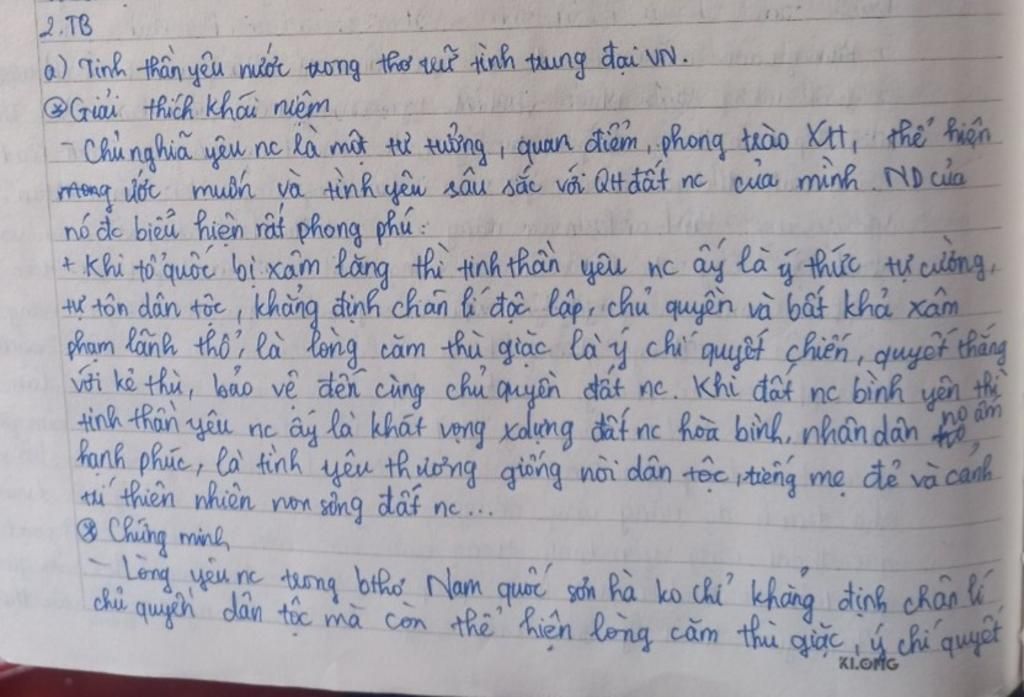 2. TB
a) Tinh thần yêu nước trong thơ trữ tình trung đại VN.
⊛ Giải thích khái niệm
- Chủ nghĩa yêu nc là một tư tưởng, quan điểm, phong trào XH, thể hiện
mong ước muốn và tình yêu sâu sắc với QH đất nc của mình. ND của
nó đc biểu hiện rất phong phú:
+ Khi tổ quốc bị xâm lăng thì tinh thần yêu nc ấy là ý thức tự cường,
tự tôn dân tộc, khẳng định chân lí độc lập, chủ quyền và bất khả xâm
phạm lãnh thổ, là lòng căm thù giặc là ý chí quyết chiến, quyết thắng
với kẻ thù, bảo vệ đến cùng chủ quyền đất nc. Khi đất nc bình yên thì
tinh thần yêu nc ấy là khát vọng xdựng đất nc hoà bình, nhân dân no ấm
hạnh phúc, là tình yêu thương giống nòi dân tộc, tiếng mẹ đẻ và cảnh
trí thiên nhiên non sông đất nc...
⊛ Chứng minh
- Lòng yêu nc trong bthơ Nam quốc sơn hà ko chỉ khẳng định chân lí
chủ quyền dân tộc mà còn thể hiện lòng căm thù giặc, ý chí quyết
KLONG